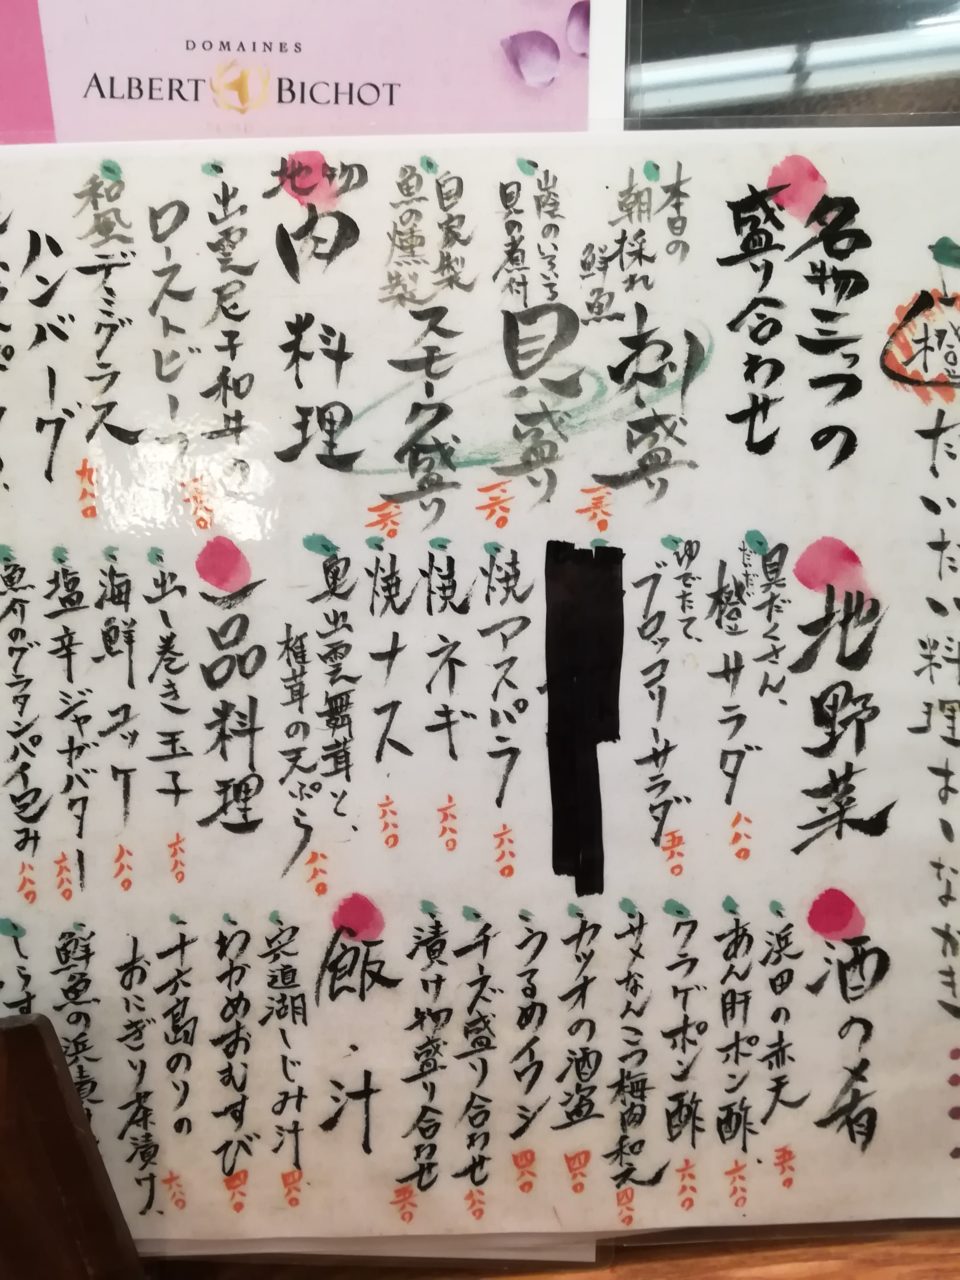 DOMAINES
ALBERT BICHOT
橙
だいだい料理はしながき
名物三つの
盛り合わせ
本日の
朝採れ
鮮魚
刺し盛り
山陰のいろいろ
貝の煮付
貝盛り
自家製
魚の燻製
スモーク盛り
地物
肉料理
出雲尼子和牛の
ローストビーフ
和風デミグラス
ハンバーグ
九八〇
地野菜
具だくさん、
だいだい
橙サラダ
八八〇
ゆでたて、
ブロッコリーサラダ
五八〇
焼アスパラ
六八〇
焼ネギ
六八〇
焼ナス
六八〇
奥出雲舞茸と、
椎茸の天ぷら
八八〇
一品料理
出し巻き玉子
六八〇
海鮮ユッケ
八八〇
塩辛ジャガバター
六八〇
魚介のグラタンパイ包み
八八〇
酒の肴
浜田の赤天
五八〇
あん肝ポン酢
六八〇
クラゲポン酢
六八〇
サメなんこつ梅肉和え
四八〇
カツオの酒盗
四八〇
うるめイワシ
四八〇
チーズ盛り合わせ
漬け物盛り合わせ
五八〇
飯・汁
宍道湖しじみ汁
四八〇
わかめおむすび
四八〇
十六島のりの
おにぎり茶漬け
六八〇
鮮魚の浜漬け
しらす